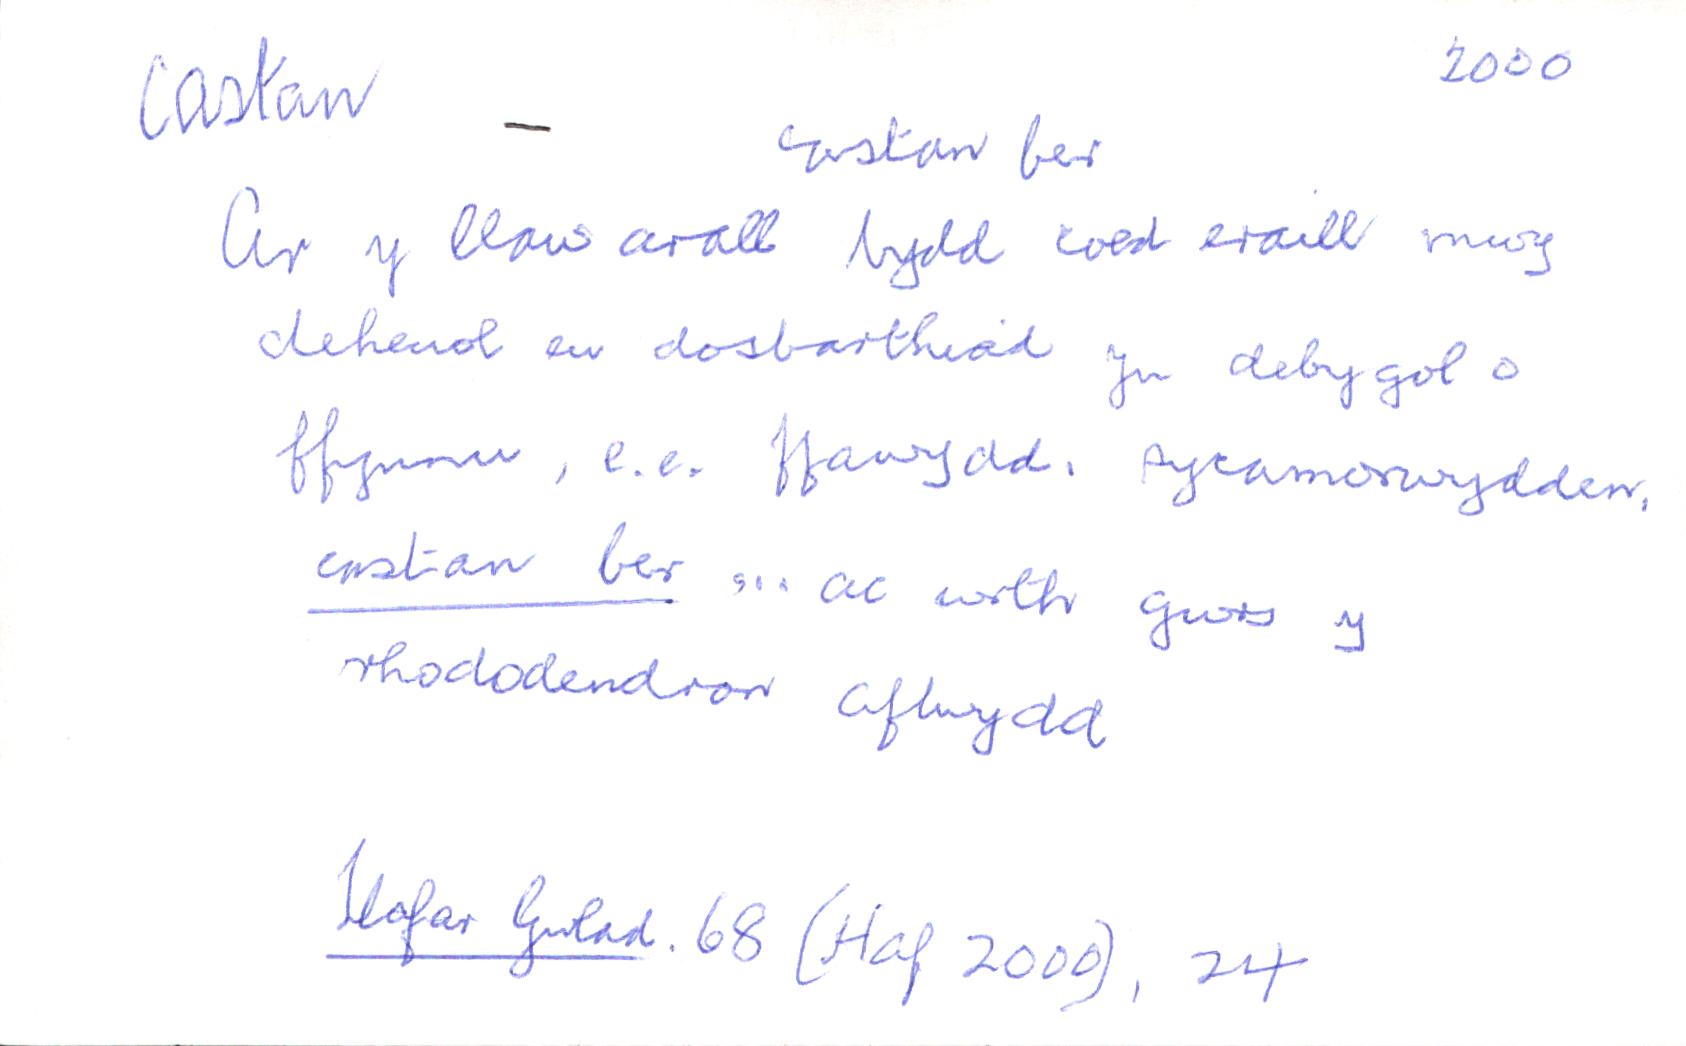 castan – 2000
castan ber
Ar y llaw arall bydd coed eraill mwy
deheuol eu dosbarthiad yn debygol o
ffynnu, e.e. ffawydd, sycamorwydden,
castan ber ... ac wrth gwrs y
rhododendron aflwydd
Llafar Gwlad. 68 (Haf 2000), 24